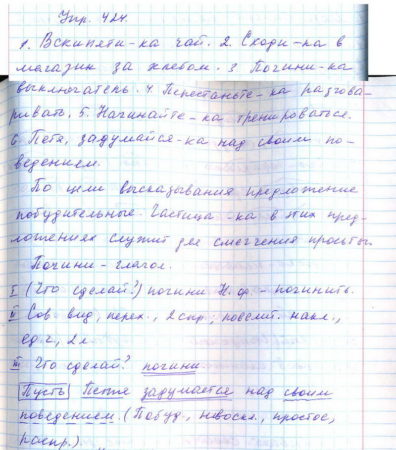 Упр. 424.
1. Вскипяти-ка чай. 2. Сходи-ка в
магазин за хлебом. 3 Почини-ка
выключатель. 4 Перестаньте-ка разгова-
ривать. 5. Начинайте-ка тренироваться.
6 Петя, задумайся-ка над своим по-
ведением.
По цели высказывания предложение
побудительные. Частица -ка в этих пред-
ложениях служит для смягчения просьбы.
Почини - глагол.
I (Что сделай?) почини Н. ф. - починить.
II Сов. вид, перех., 2 спр., повелит. накл.,
ед. ч., 2 л.
III Что сделай? почини.
Пусть Петя задумается над своим
поведением. (Побуд., невоскл., простое,
распр.)